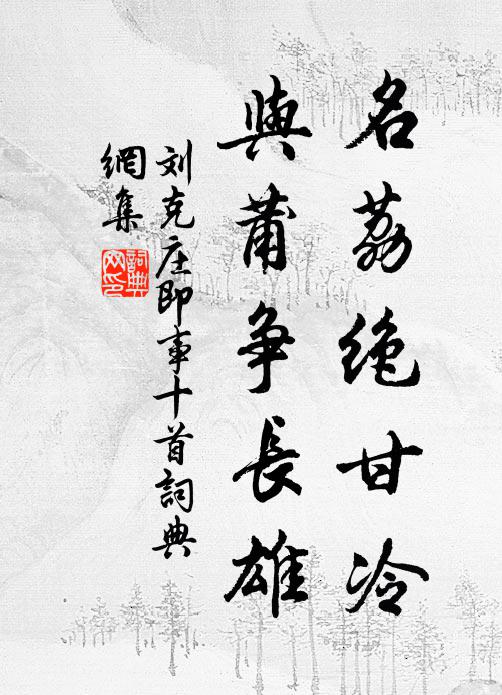 名荔绝甘冷
與莆争長雄
刘克庄即事十首詞典
網集
詞典網印